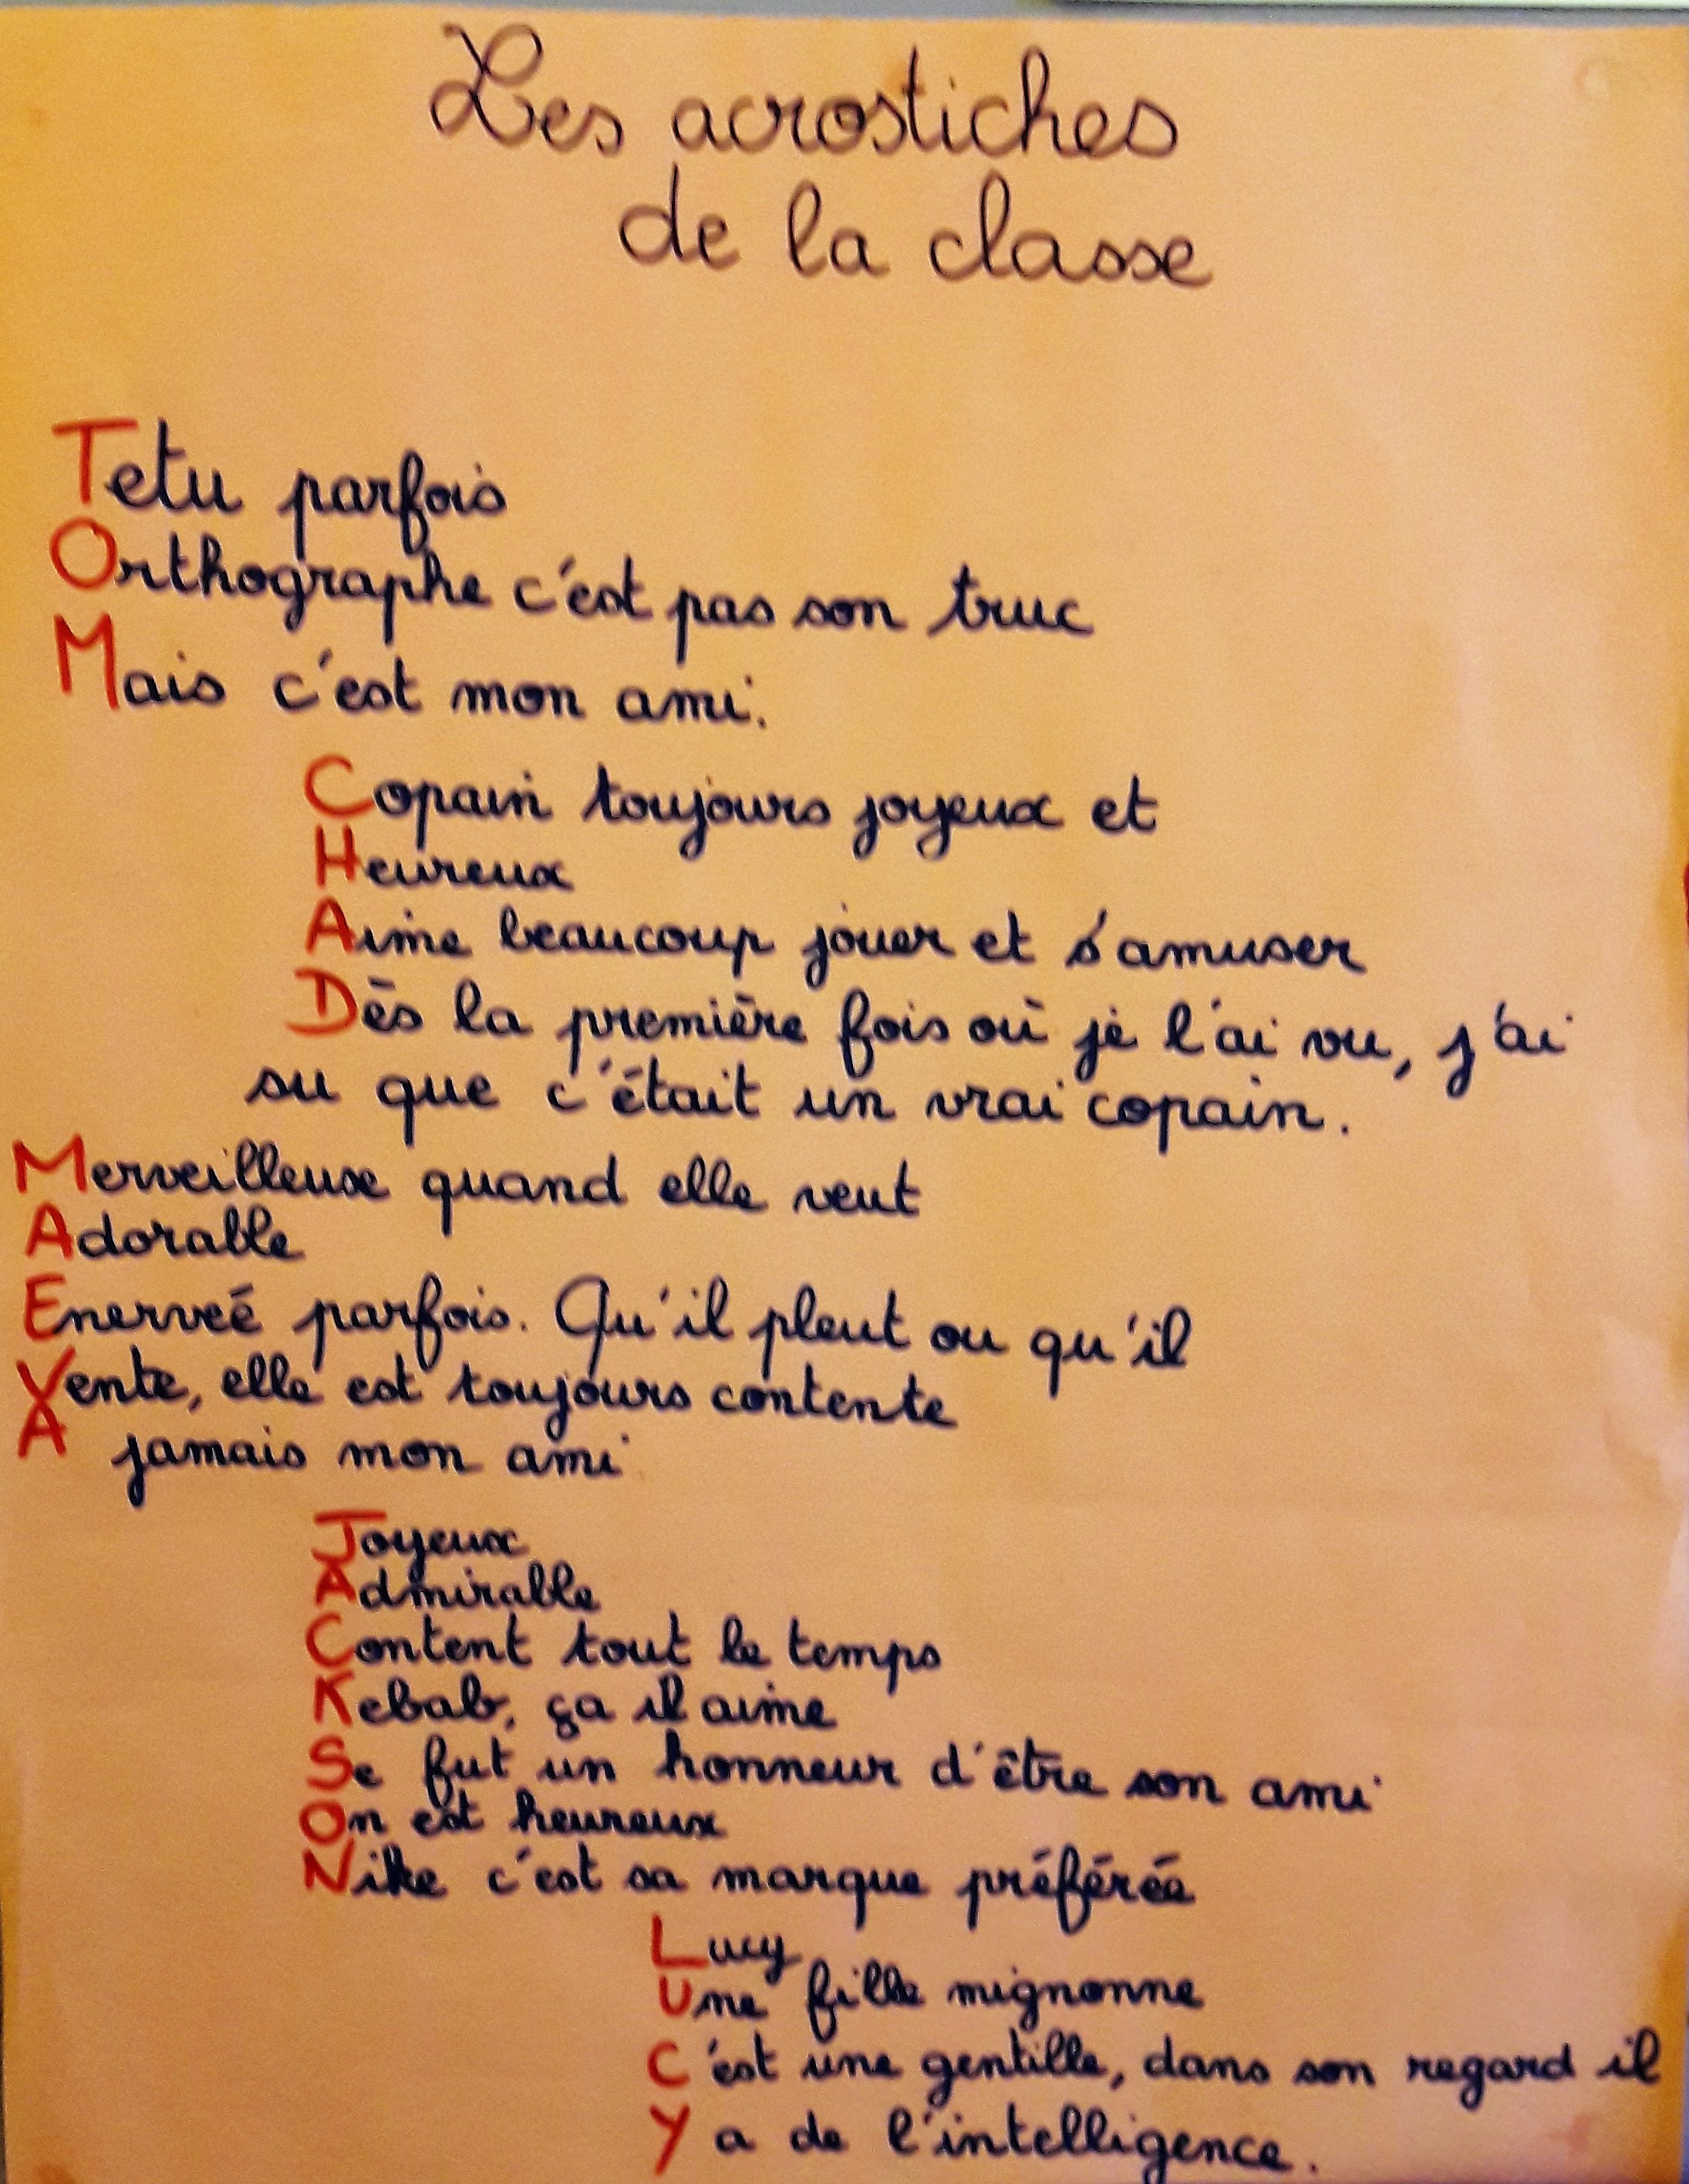 Les acrostiches
de la classe
Tetu parfois
Orthographe c'est pas son truc
Mais c'est mon ami.
Copain toujours joyeux et
Heureux
Aime beaucoup jouer et s'amuser
Dès la première fois où je l'ai vu, j'ai
su que c'était un vrai copain.
Merveilleuse quand elle veut
Adorable
Enerveé parfois. Qu'il pleut ou qu'il
Vente, elle est toujours contente
A jamais mon ami
Joyeux
Admirable
Content tout le temps
Kebab, ça il aime
Se fut un honneur d'être son ami
On est heureux
Nike c'est sa marque préféréé
Lucy
Une fille mignonne
C'est une gentille, dans son regard il
Y a de l'intelligence.